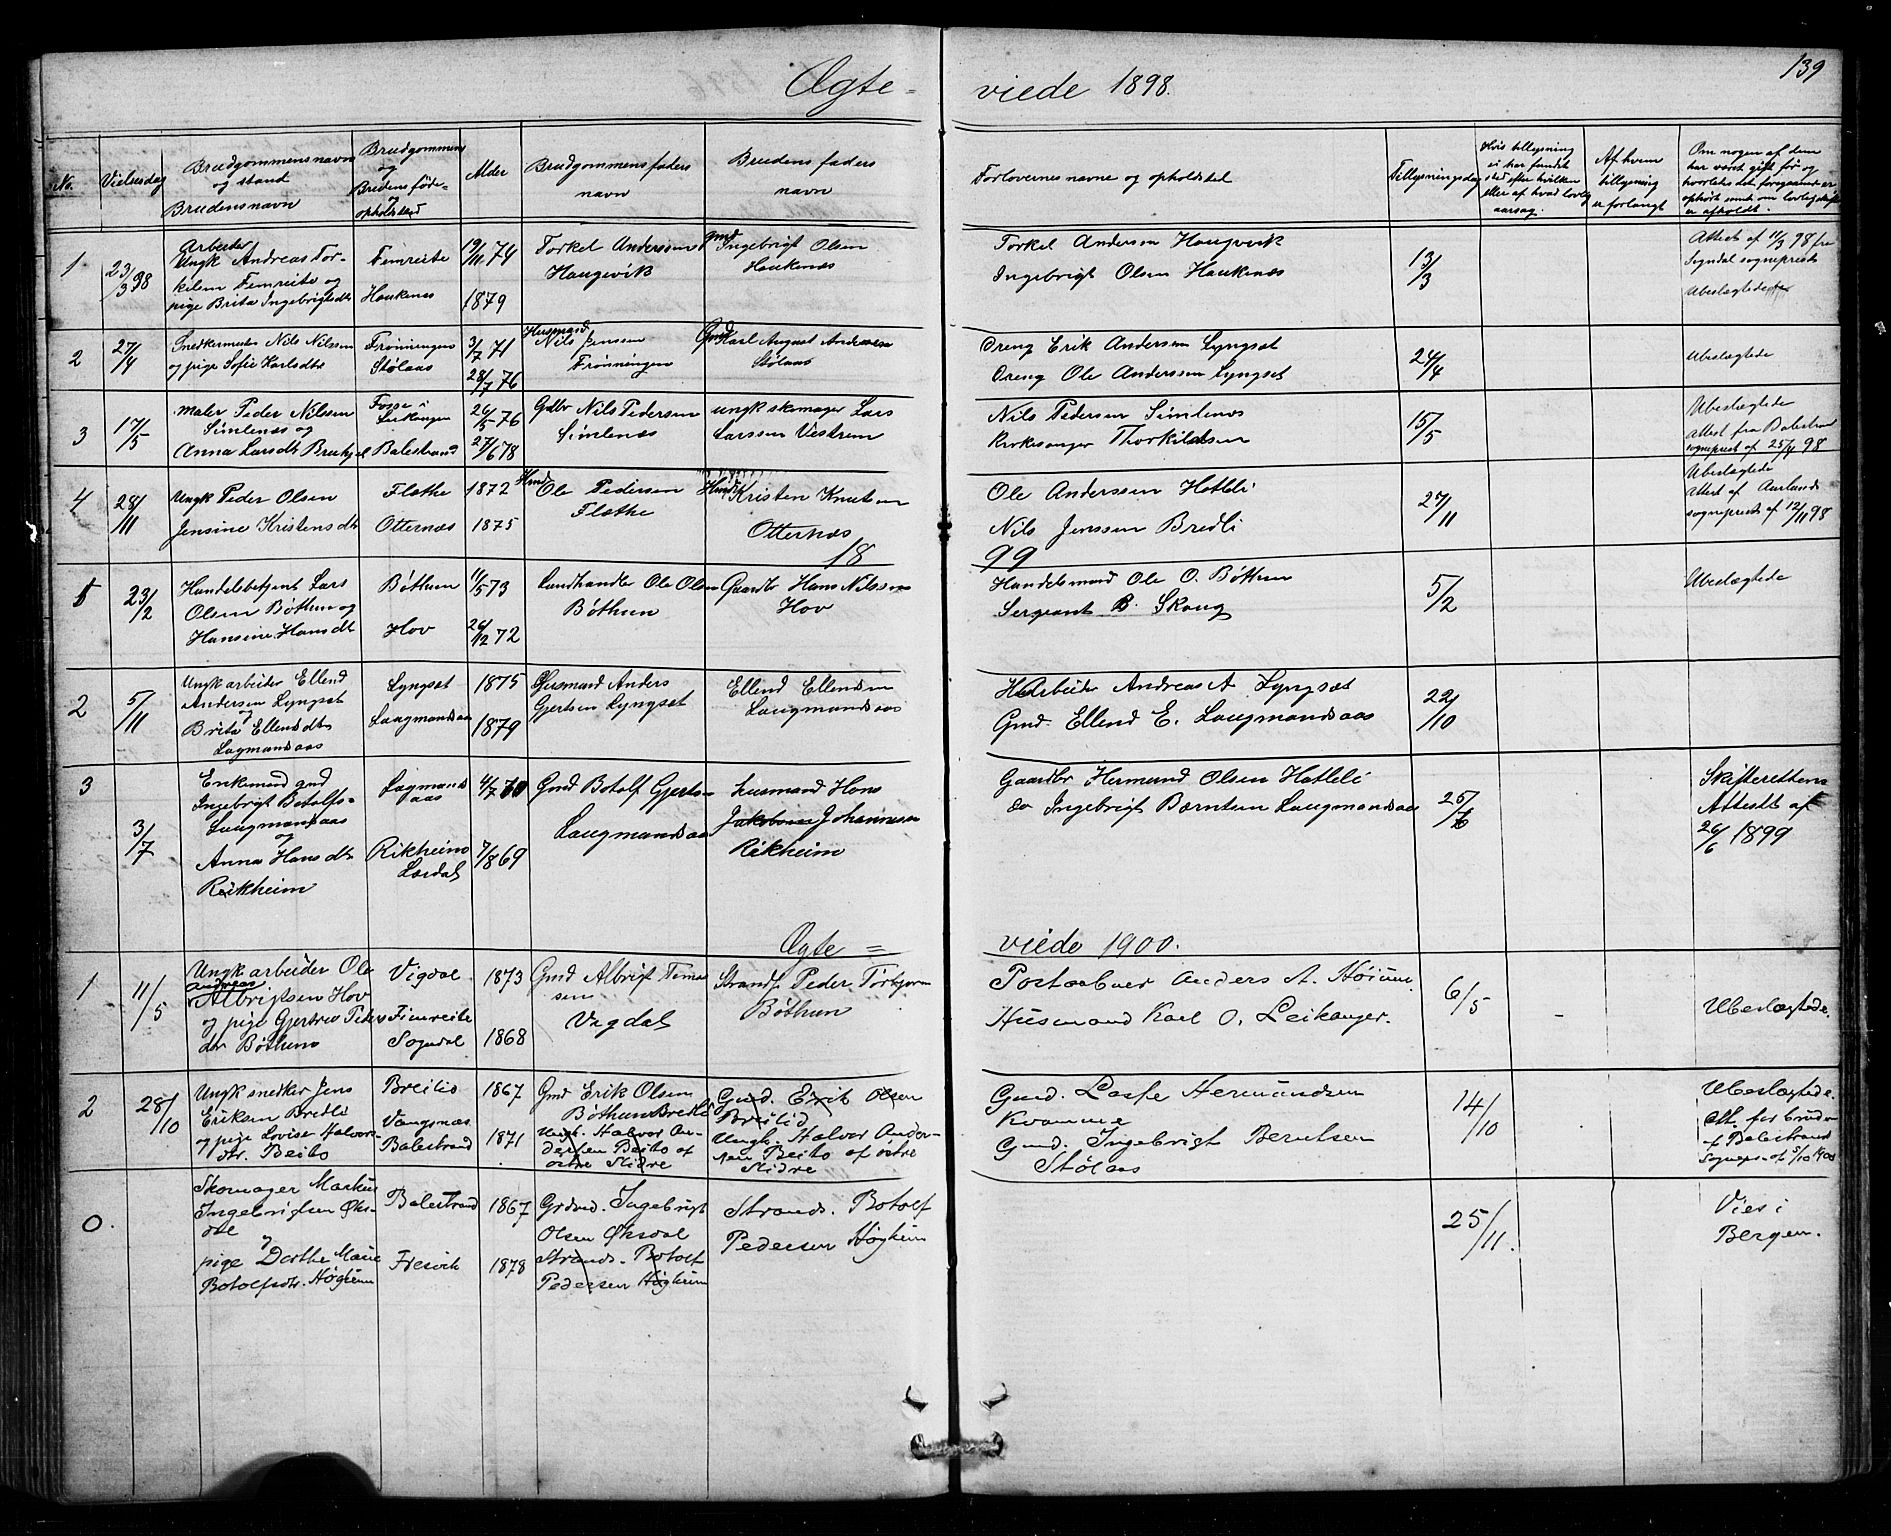 139
Ægte- viede 1898.
No.
Vielsesdag
Brudgommens navn
og stand
Brudens navn
Brudgommens
og
Brudens føde-
og
opholdsted
Alder
Brudgommens faders
navn
Brudens faders
navn
Forlovernes navne og opholdsted
Tillysningsdag
Hvis tillysning
ei har fundet
sted efter hvilken
eller af hvad lovlig
aarsag.
Af hvem
tillysning
er forlangt
Om nogen af dem
har været gift før og
hvorledes det foregaaende er
ophørt samt om lovlig skifte
er afholdt.
1
23/3 98
Arbeider
Ungk Andreas Tor-
kilsen Fimreite og
pige Brita Ingebrigtsdtr
Fimreite
Haukenes
19/11 74
1879
Torkel Anderssen
Haugevik
Gmd Ingebrigt Olsen
Haukenæs
Torkel Andersen Haugvik
Ingebrigt Olsen Haukenæs
13/3
Attest af 11/3 98 fra
Sogndal sogneprest
Ubeslægtede
2
27/4
Snedkermester Nils Nilssen
og pige Sofie Karlsdtr
Frønningen
Stølaas
3/7 71
28/7 76
Husmand
Nils Jenssen
Frønningen
Gmd Karl August Andersen
Stølaas
Dreng Erik Andersen Lyngset
Dreng Ole Anderssen Lyngset
24/4
Ubeslægtede
3
17/5
Maler Peder Nilssen
Simlenæs og
Anna Larsdtr
Fosse i
Leikanger
Balestrand
26/5 76
27/6 78
Gdbr Nils Pedersen
Simlenæs
Ungk skomager Lars
Larssen Vestrem
Nils Pedersen Simlenæs
Kirkesanger Thorkildsen
15/5
Ubeslægtede
Attest fra Balestrand
sogneprest af 25/4 98
4
28/11
Ungk Peder Olsen
Jensine Kristensdtr
Flathe
Otternæs
1872
1875
Hmd Ole Pedersen
Flathe
Hmd Kristen Knutsen
Otternæs
Ole Anderssen Hatleli
Nils Jenssen Bredli
27/11
Ubeslægtede
Attest af Aurlands
sogneprest af 12/11 98
18 99
1
23/2
Handelsbetjent Lars
Olsen Bøthun og
Hansine Hansdtr
Bøthun
Hov
11/5 73
26/12 72
Landhandler Ole Olsen
Bøthun
Gaardbr Hans Nilssen
Hov
Handelsmand Ole O. Bøthun
Sergeant B. Skaug
5/2
Ubeslægtede
2
5/11
Ungk arbeider Ellend
Andersen Lyngset
og
Brita Ellensdtr
Lagmandsaas
Lyngset
Laugmandsaa
1875
1879
Husmand Anders
Gjertsen Lyngset
Ellend Ellendsen
Laugmandsaas
Arbeider Andreas A Lyngset
Gmd. Ellend E. Laugmandsaas
22/10
3
3/7
Enkemand gmd
Ingebrigt Botolfs-
Laugmandsaas
og
Anna Hansdtr
Rikheim
Lagmands
aas
Rikheim
Lærdal
4/7 70
7/8 69
Gmd Botolf Gjerts-
Laugmandsaas
Husmand Hans
Johannesen
Rikheim
Gaardbr Hermund Olsen Hatleli
do Ingebrigt Bærntsen Laugmandsaas
25/6
Skifterettens
Attest af
26/6 1899
Ægte = viede 1900.
1
11/5
Ungk arbeider Ole
Andreas
Albrigtsen Hov
og pige Gjertrud Peders
dtr Bøthun
Vigdal
Fimreite
Sogndal
1873
1868
Gmd Albrigt Tomas
sen
Vigdal
Strands. Peder Torbjørn
Bøthun
Postaabner Anders A.
Husmand Karl O. Leikanger.
6/5
-
Ubeslægtede.
2
28/10
Ungk snedker Jens
Eriksen Bredli
og pige Lovise Halvors
dtr. Beito
Breilid
Vangsnæs
Balestrand
1867
1871
Gmd Erik Olsen
Bøthun Bredli
Ungk. Halvor An-
dersen Beito af
østre Slidre
Gmd. Erik Olsen
Breilid
Ungk. Halvor Ander-
sen Beito af østre
Slidre
Gmd. Lasse Hermundsen
Kvamme
Gmd. Ingebrigt Berntsen
Stølaas
14/10
Ubeslægtede.
Att. for bruden
af Balestrand
Sognepr. af 5/10 1900
0.
Skomager Markus
Ingebrigtsen Øks-
dal
og
pige Dorthe Marie
Botolfsdtr. Høgheim
Balestrand
Fresvik
1867
1878
Grdmd. Ingebrigt
Olsen Øksdal
Strands. Botolf
Pedersen Høgheim
Strands. Botolf
Pedersen Høgheim
25/11.
Vies i
Bergen.